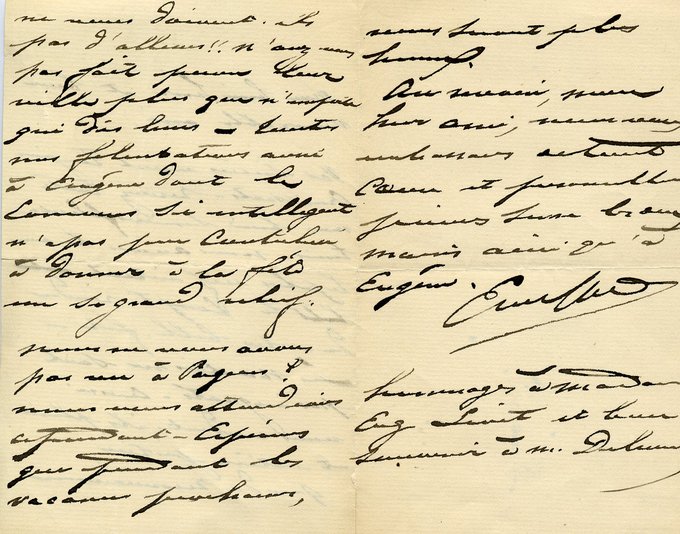 ne vous doivent-ils
pas d'ailleurs!! n'avez vous
pas fait pour leur
ville plus que n'importe
qui des leurs - toutes
nos félicitations aussi
à Eugène dont le
concours si intelligent
n'a pas peu contribué
à donner à la fête
un si grand relief.
nous ne vous avons
pas vu à Pager?
nous vous attendions
cependant - Espérons
que pendant les
vacances prochaines,
nous serons plus
heureux.
Au revoir, mon
cher ami, nous vous
embrassons de tout
cœur et
mains ainsi qu'à
Eugène.
hommages à madame
Eug. Livet et bon
souvenir à m.